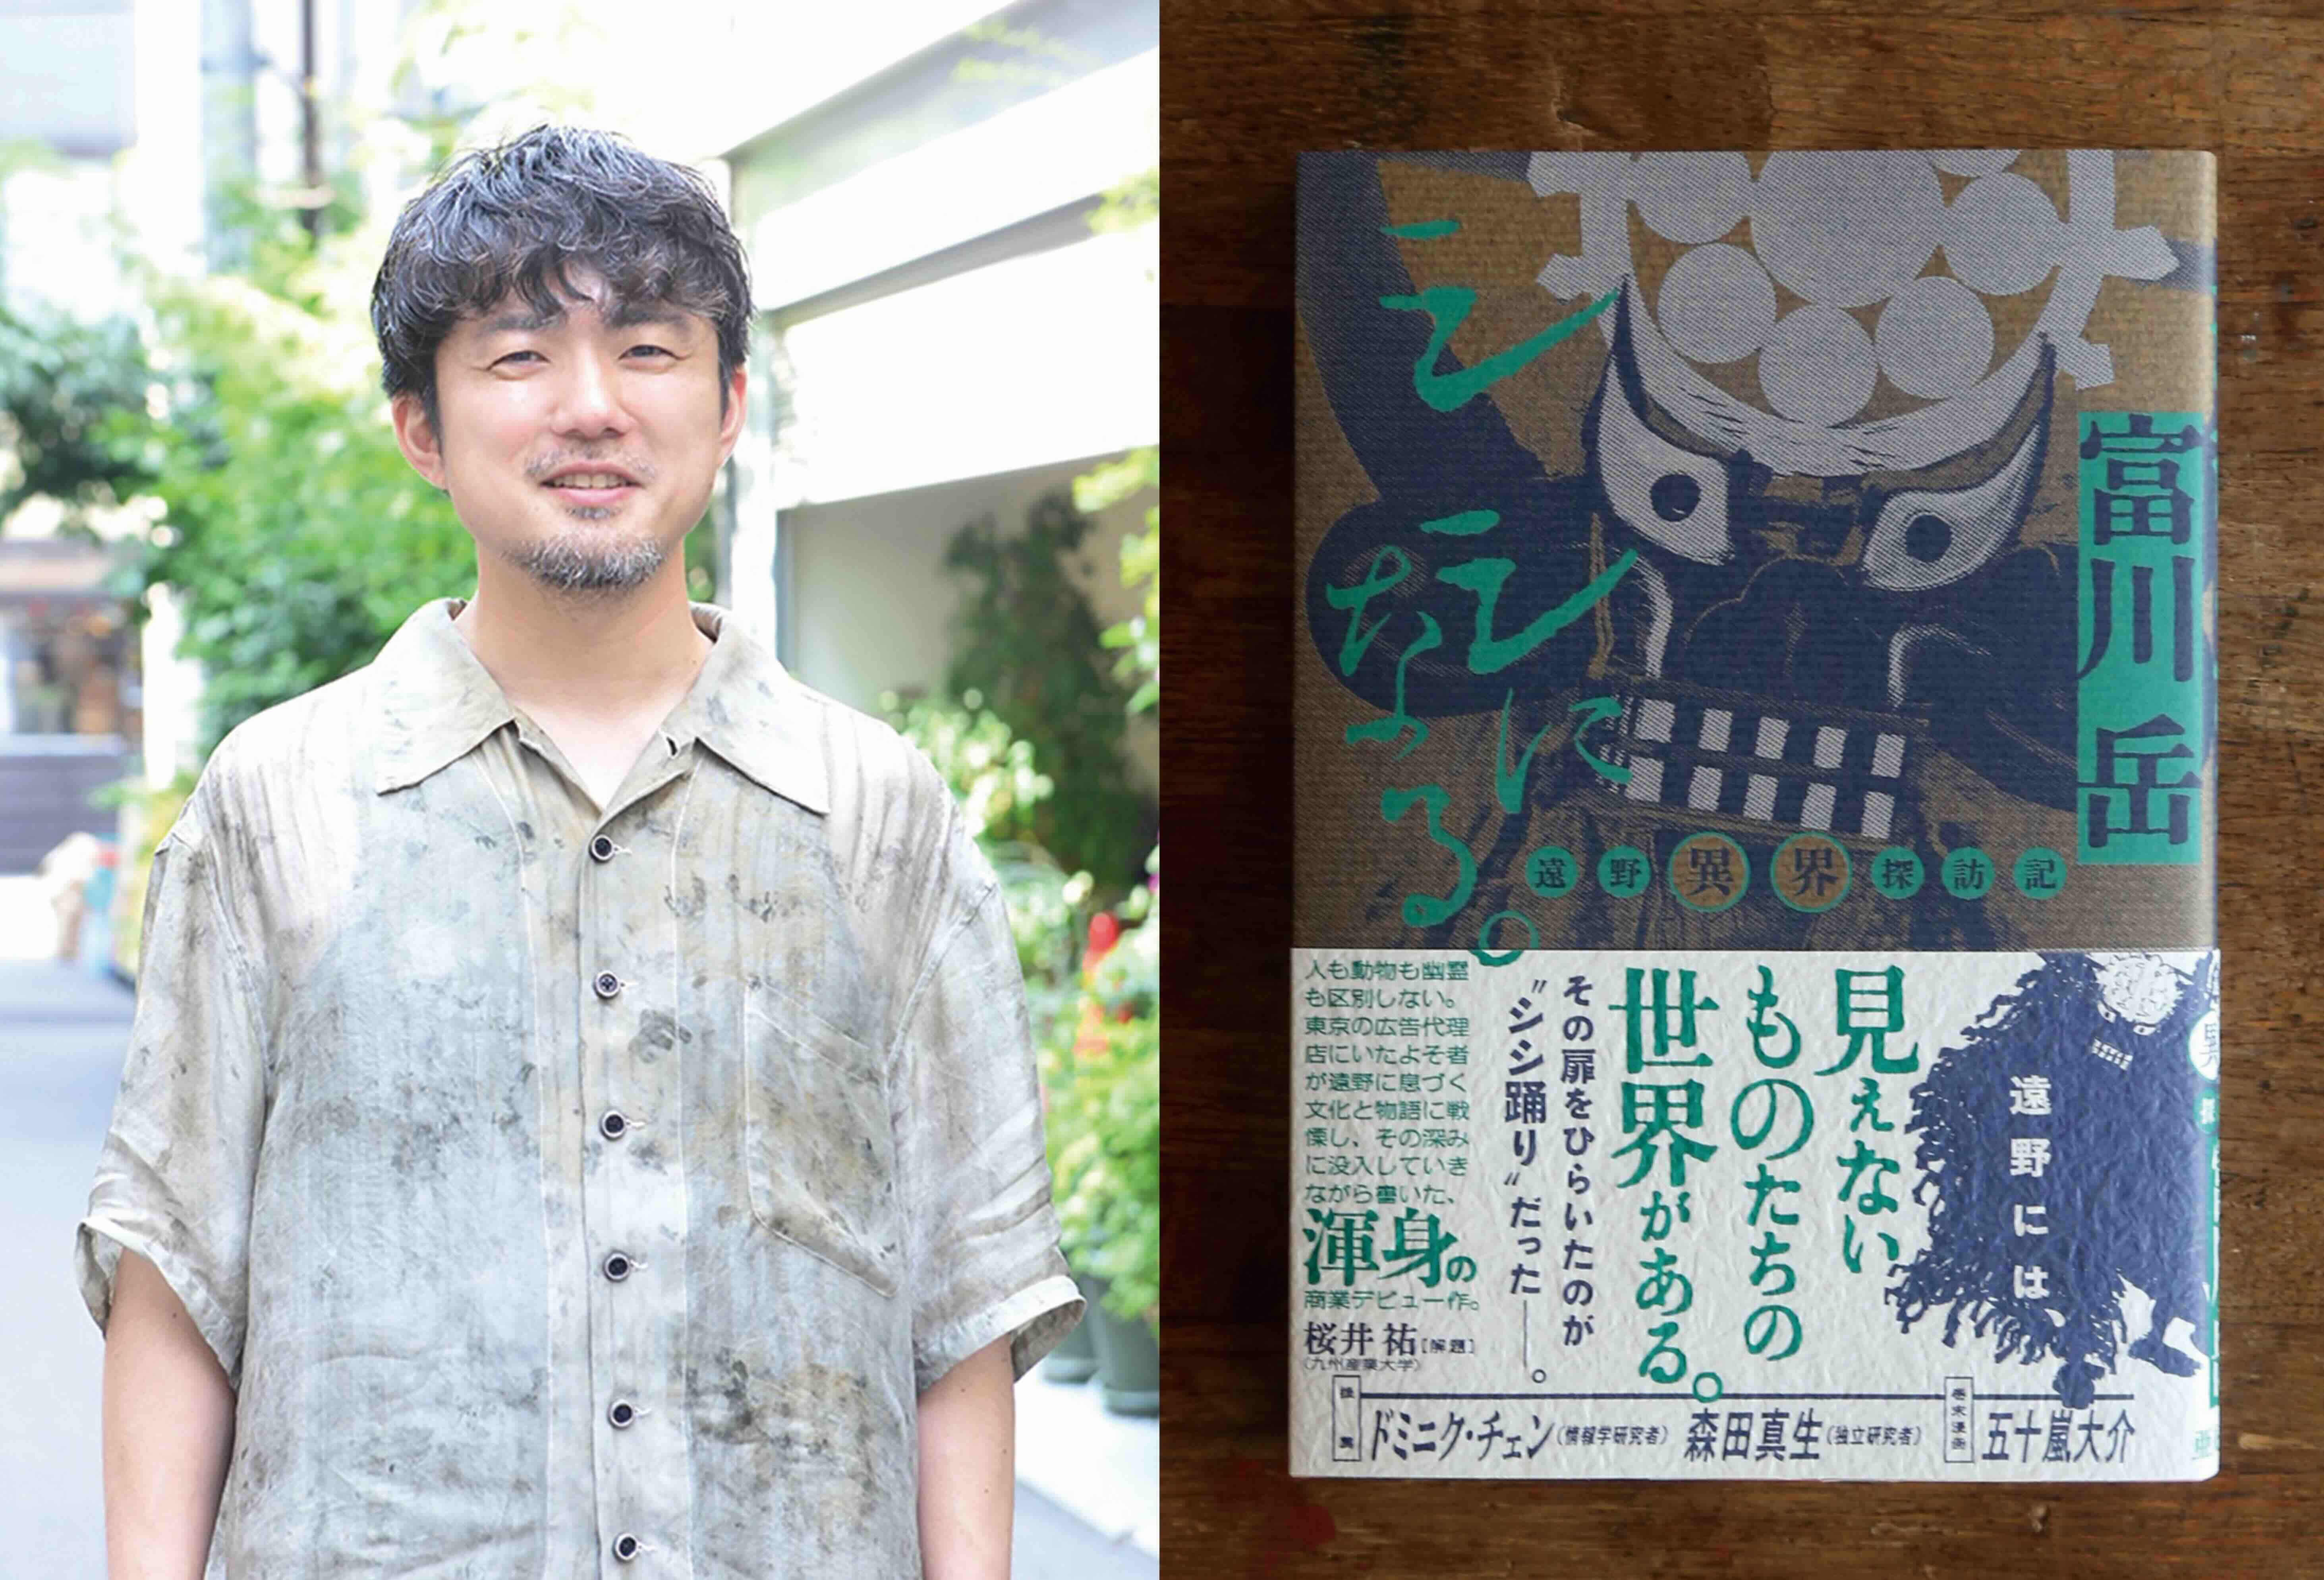 シシになる。
遠野異界探訪記
富川岳
遠野には
見えない
ものたちの
世界がある。
その扉をひらいたのが
〝シシ踊り〟だった——。
人も動物も幽霊
も区別しない。
東京の広告代理
店にいたよそ者
が遠野に息づく
文化と物語に戦
慄し、その深み
に没入していき
ながら書いた、
渾身の
商業デビュー作。
桜井祐［解題］
（九州産業大学）
ドミニク・チェン（情報学研究者） 森田真生（独立研究者）
巻末漫画 五十嵐大介